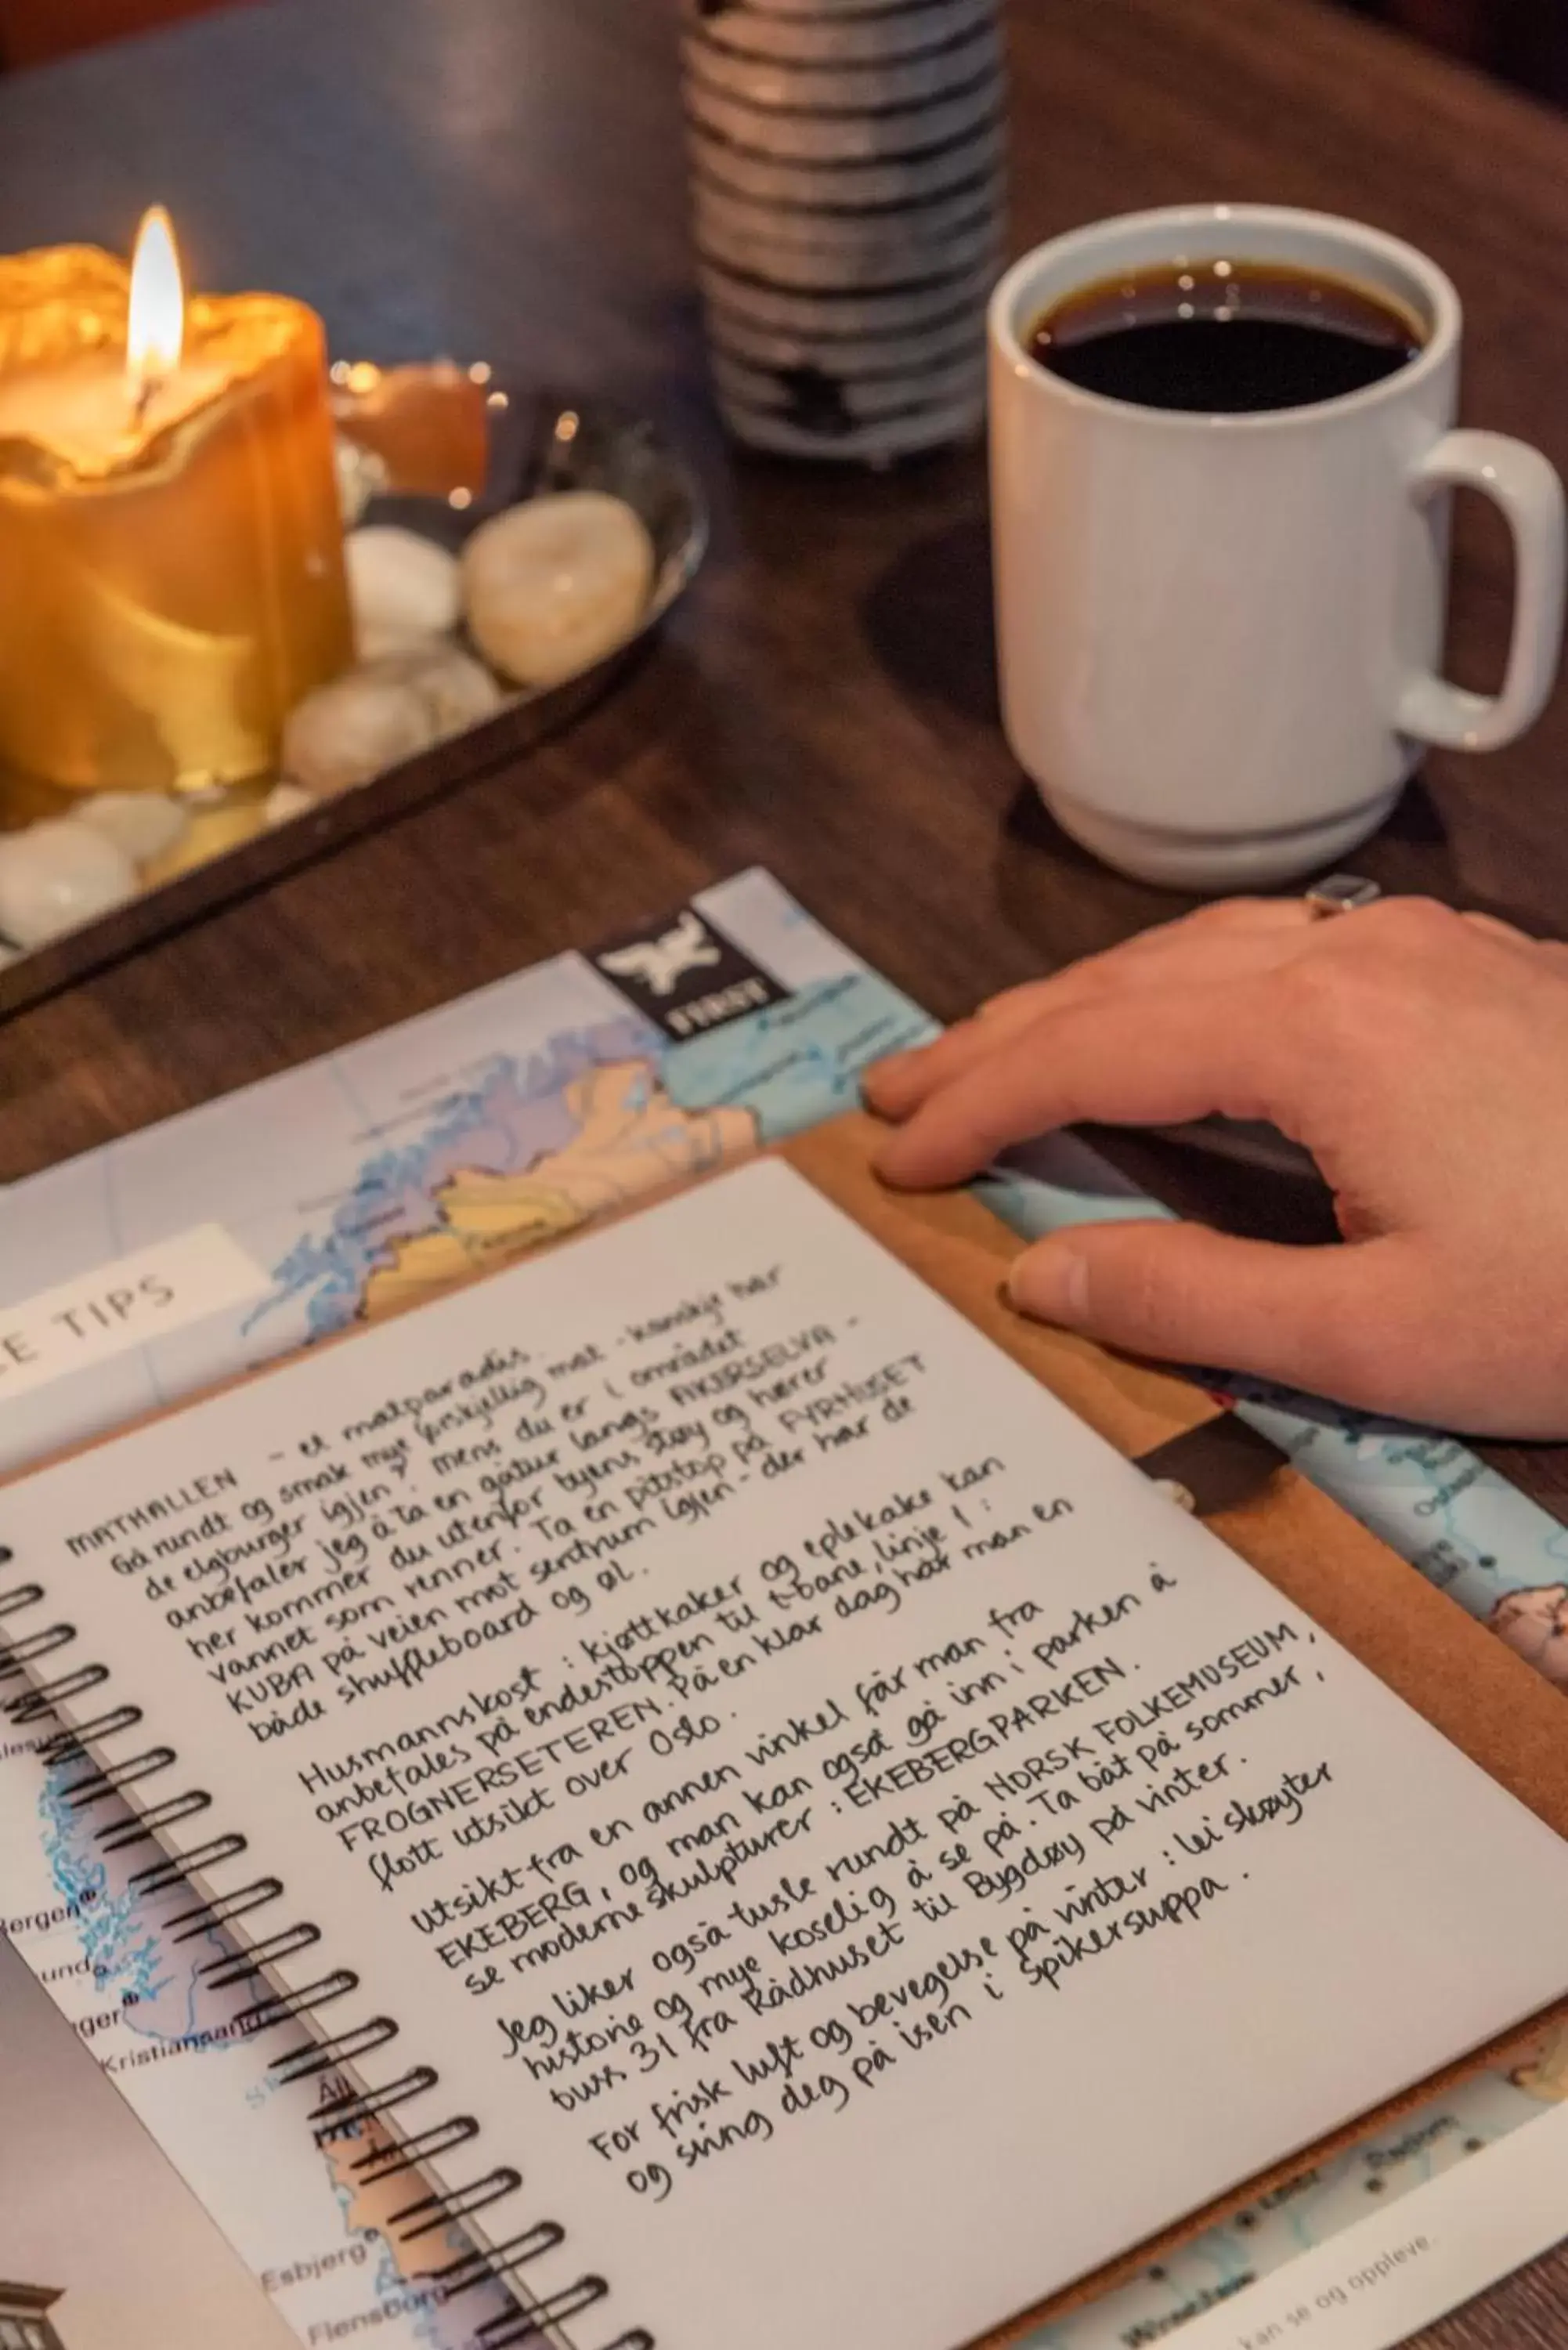 FIRST
E TIPS
MATHALLEN - et matparadis.
Gå rundt og smak mye forskjellig mat - kanskje har
de elgburger igjen? Mens du er i området
anbefaler jeg å ta en gåtur langs AKERSELVA -
her kommer du utenfor byens støy og hører
vannet som renner. Ta en pitstop på FYRHUSET
KUBA på veien mot sentrum igjen - der har de
både shuffleboard og øl.
Husmannskost: kjøttkaker og eplekake kan
anbefales på endestoppen til t-bane, linje 1:
FROGNERSETEREN. På en klar dag har man en
flott utsikt over Oslo.
Utsikt fra en annen vinkel får man fra
EKEBERG, og man kan også gå inn i parken å
se moderne skulpturer: EKEBERGPARKEN.
Jeg liker også tusle rundt på NORSK FOLKEMUSEUM,
historie og mye koselig å se på. Ta båt på sommer,
buss 31 fra Rådhuset til Bygdøy på vinter.
For frisk luft og bevegelse på vinter: lei skøyter
og sving deg på isen i Spikersuppa.
ergen
und
ger
Kristiansand
Esbjerg
Flensburg
kan se og oppleve.